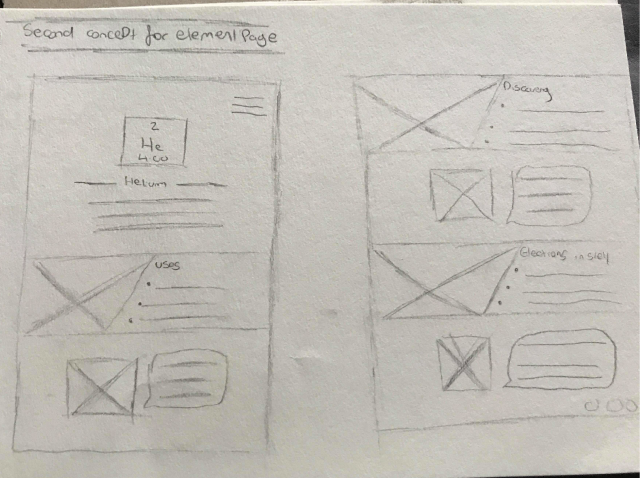 Second concept for element Page
2
He
4.00
Helium
uses
Discovery
Electrons in